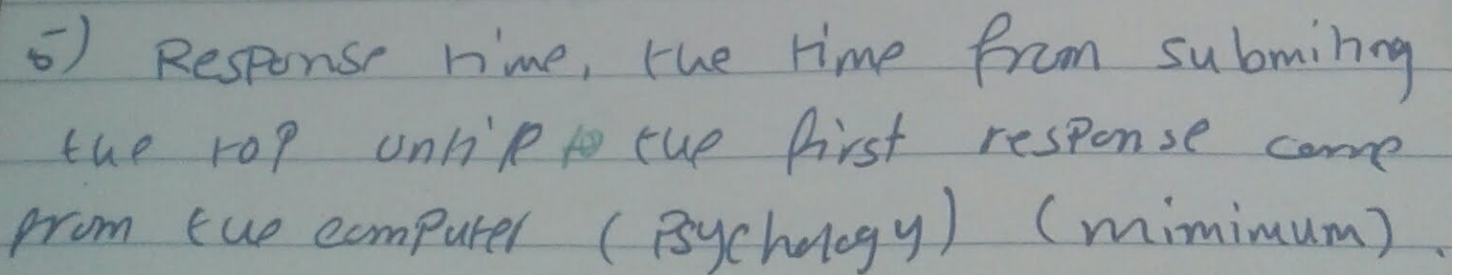 5) Response time, the time from submiting
the job until to the first response come
from the computer (Psychology) (mimimum).